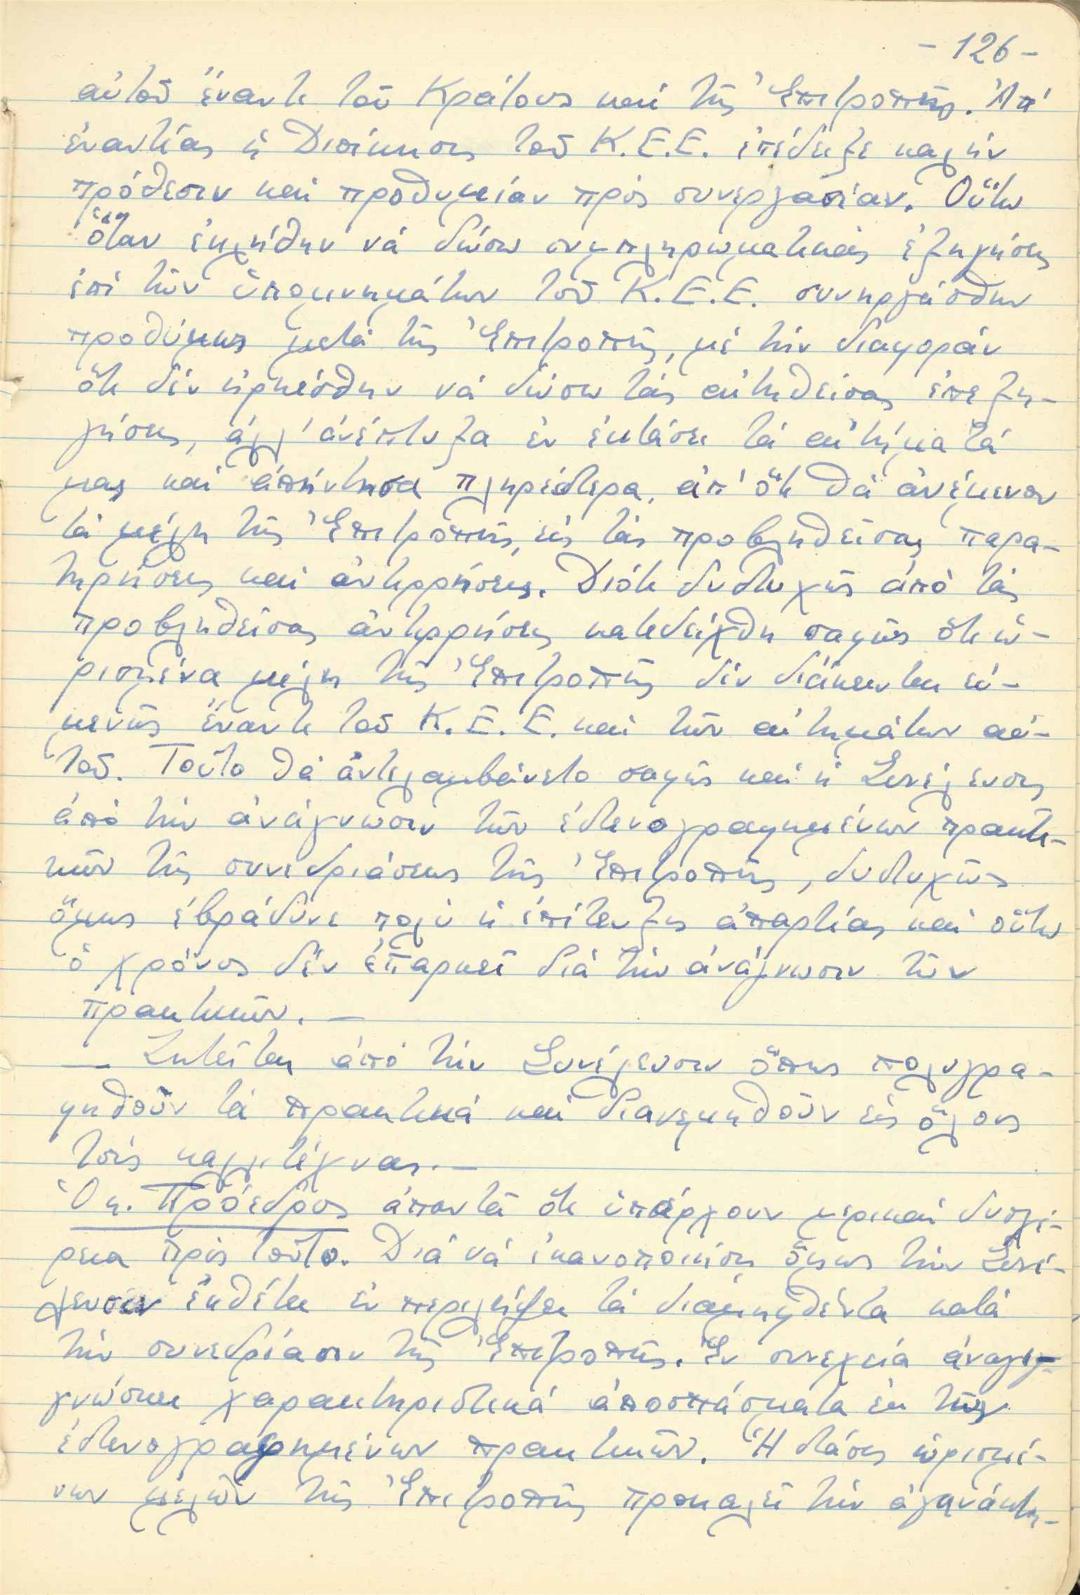 - 126 -
αὐτοῦ ἔναντι τοῦ Κράτους καί τῆς Ἐπιτροπῆς. Ἀπ'
ἐναντίας ἡ Διοίκησις τοῦ Κ.Ε.Ε. ἐπέδειξε καλήν
πρόθεσιν καί προθυμίαν πρός συνεργασίαν. Οὕτω
ὅταν ἐκλήθην νά δώσω συμπληρωματικάς ἐξηγήσεις
ἐπί τῶν ὑπομνημάτων τοῦ Κ.Ε.Ε. συνηργάσθην
προθύμως μετά τῆς Ἐπιτροπῆς, μέ τήν διαφοράν
ὅτι δέν ἠρκέσθην νά δώσω τάς αἰτηθείσας ἐπεξη-
γήσεις, ἀλλ' ἀνέπτυξα ἐν ἐκτάσει τά αἰτήματά
μας καί ἀπήντησα πληρέστερα, ἀπ' ὅτι θά ἀνέμενον
τά μέλη τῆς Ἐπιτροπῆς, εἰς τάς προβληθείσας παρα-
τηρήσεις καί ἀντιρρήσεις. Διότι δυστυχῶς ἀπό τάς
προβληθείσας ἀντιρρήσεις κατεδείχθη σαφῶς ὅτι ὡ-
ρισμένα μέλη τῆς Ἐπιτροπῆς δέν διάκεινται εὐ-
μενῶς ἔναντι τοῦ Κ.Ε.Ε. καί τῶν αἰτημάτων αὐ-
τοῦ. Τοῦτο θά ἀντελαμβάνετο σαφῶς καί ἡ Συνέλευσις
ἀπό τήν ἀνάγνωσιν τῶν ἐστενογραφημένων πρακτι-
κῶν τῆς συνεδριάσεως τῆς Ἐπιτροπῆς, δυστυχῶς
ὅμως ἐβράδυνε πολύ ἡ ἐπίτευξις ἀπαρτίας καί οὕτω
ὁ χρόνος δέν ἐπαρκεῖ διά τήν ἀνάγνωσιν τῶν
πρακτικῶν. —
— Ζητεῖται ἀπό τήν Συνέλευσιν ὅπως πολυγρα-
φηθοῦν τά πρακτικά καί διανεμηθοῦν εἰς ὅλους
τούς καλλιτέχνας. —
Ὁ κ. Πρόεδρος ἀπαντᾶ ὅτι ὑπάρχουν μερικαί δυσχέ-
ρειαι πρός τοῦτο. Διά νά ἱκανοποιήση ὅμως τήν Συνέ-
λευσιν ἐκθέτει ἐν περιλήψει τά διαμειφθέντα κατά
τήν συνεδρίασιν τῆς Ἐπιτροπῆς. Ἐν συνεχεία ἀναγι-
γνώσκει χαρακτηριστικά ἀποσπάσματα ἐκ τῶν
ἐστενογραφημένων πρακτικῶν. Ἡ στάσις ὡρισμέ-
νων μελῶν τῆς Ἐπιτροπῆς προκαλεῖ τήν ἀγανάκτη-